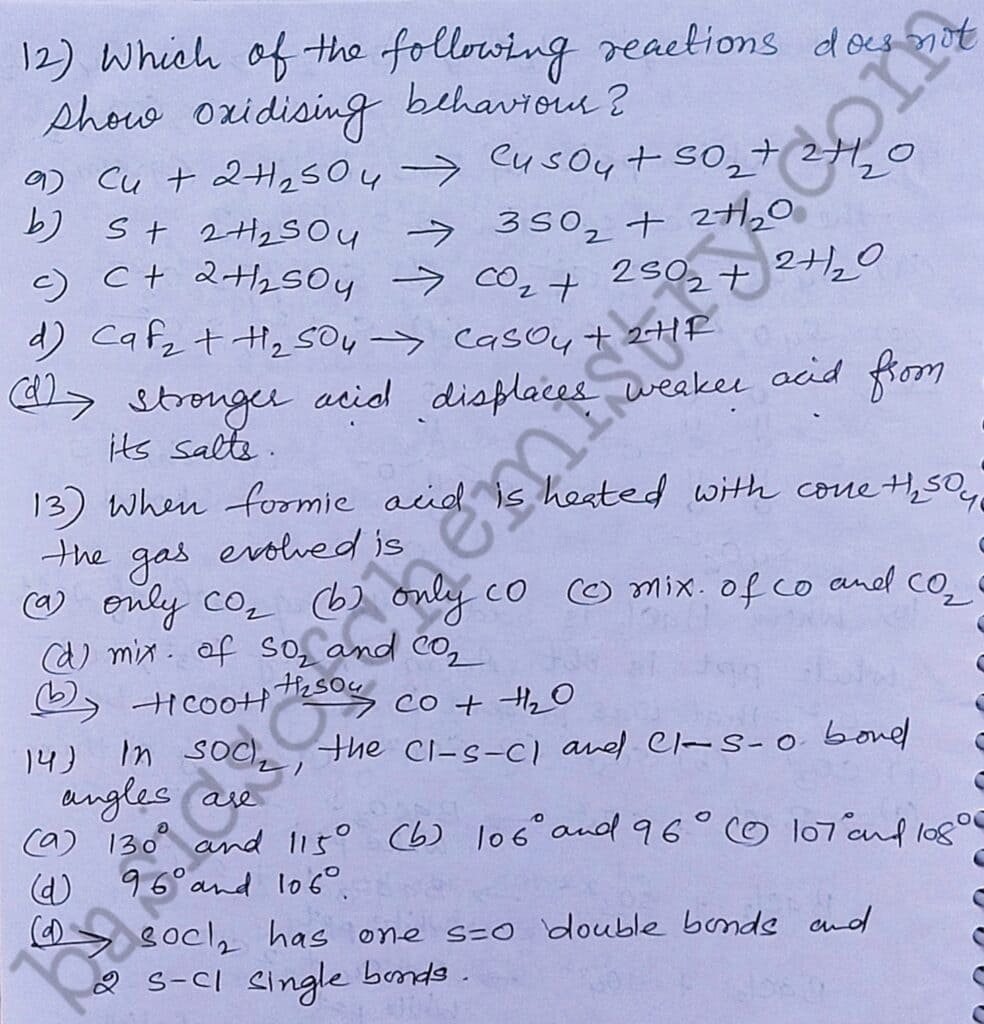 12) Which of the following reactions does not
show oxidising behaviour?
a) Cu + 2H₂SO₄ → CuSO₄ + SO₂ + 2H₂O
b) S + 2H₂SO₄ → 3SO₂ + 2H₂O
c) C + 2H₂SO₄ → CO₂ + 2SO₂ + 2H₂O
d) CaF₂ + H₂SO₄ → CaSO₄ + 2HF
(d)→ stronger acid displaces weaker acid from
its salts.
13) When formic acid is heated with conc H₂SO₄
the gas evolved is
(a) only CO₂ (b) only CO (c) mix. of CO and CO₂
(d) mix. of SO₂ and CO₂
(b)→ HCOOH H₂SO₄→ CO + H₂O
14) In SOCl₂, the Cl-S-Cl and Cl-S-O bond
angles are
(a) 130° and 115° (b) 106° and 96° (c) 107° and 108°
(d) 96° and 106°.
(d)→ SOCl₂ has one S=O double bonds and
2 S-Cl single bonds.
basicsofchemistry.com